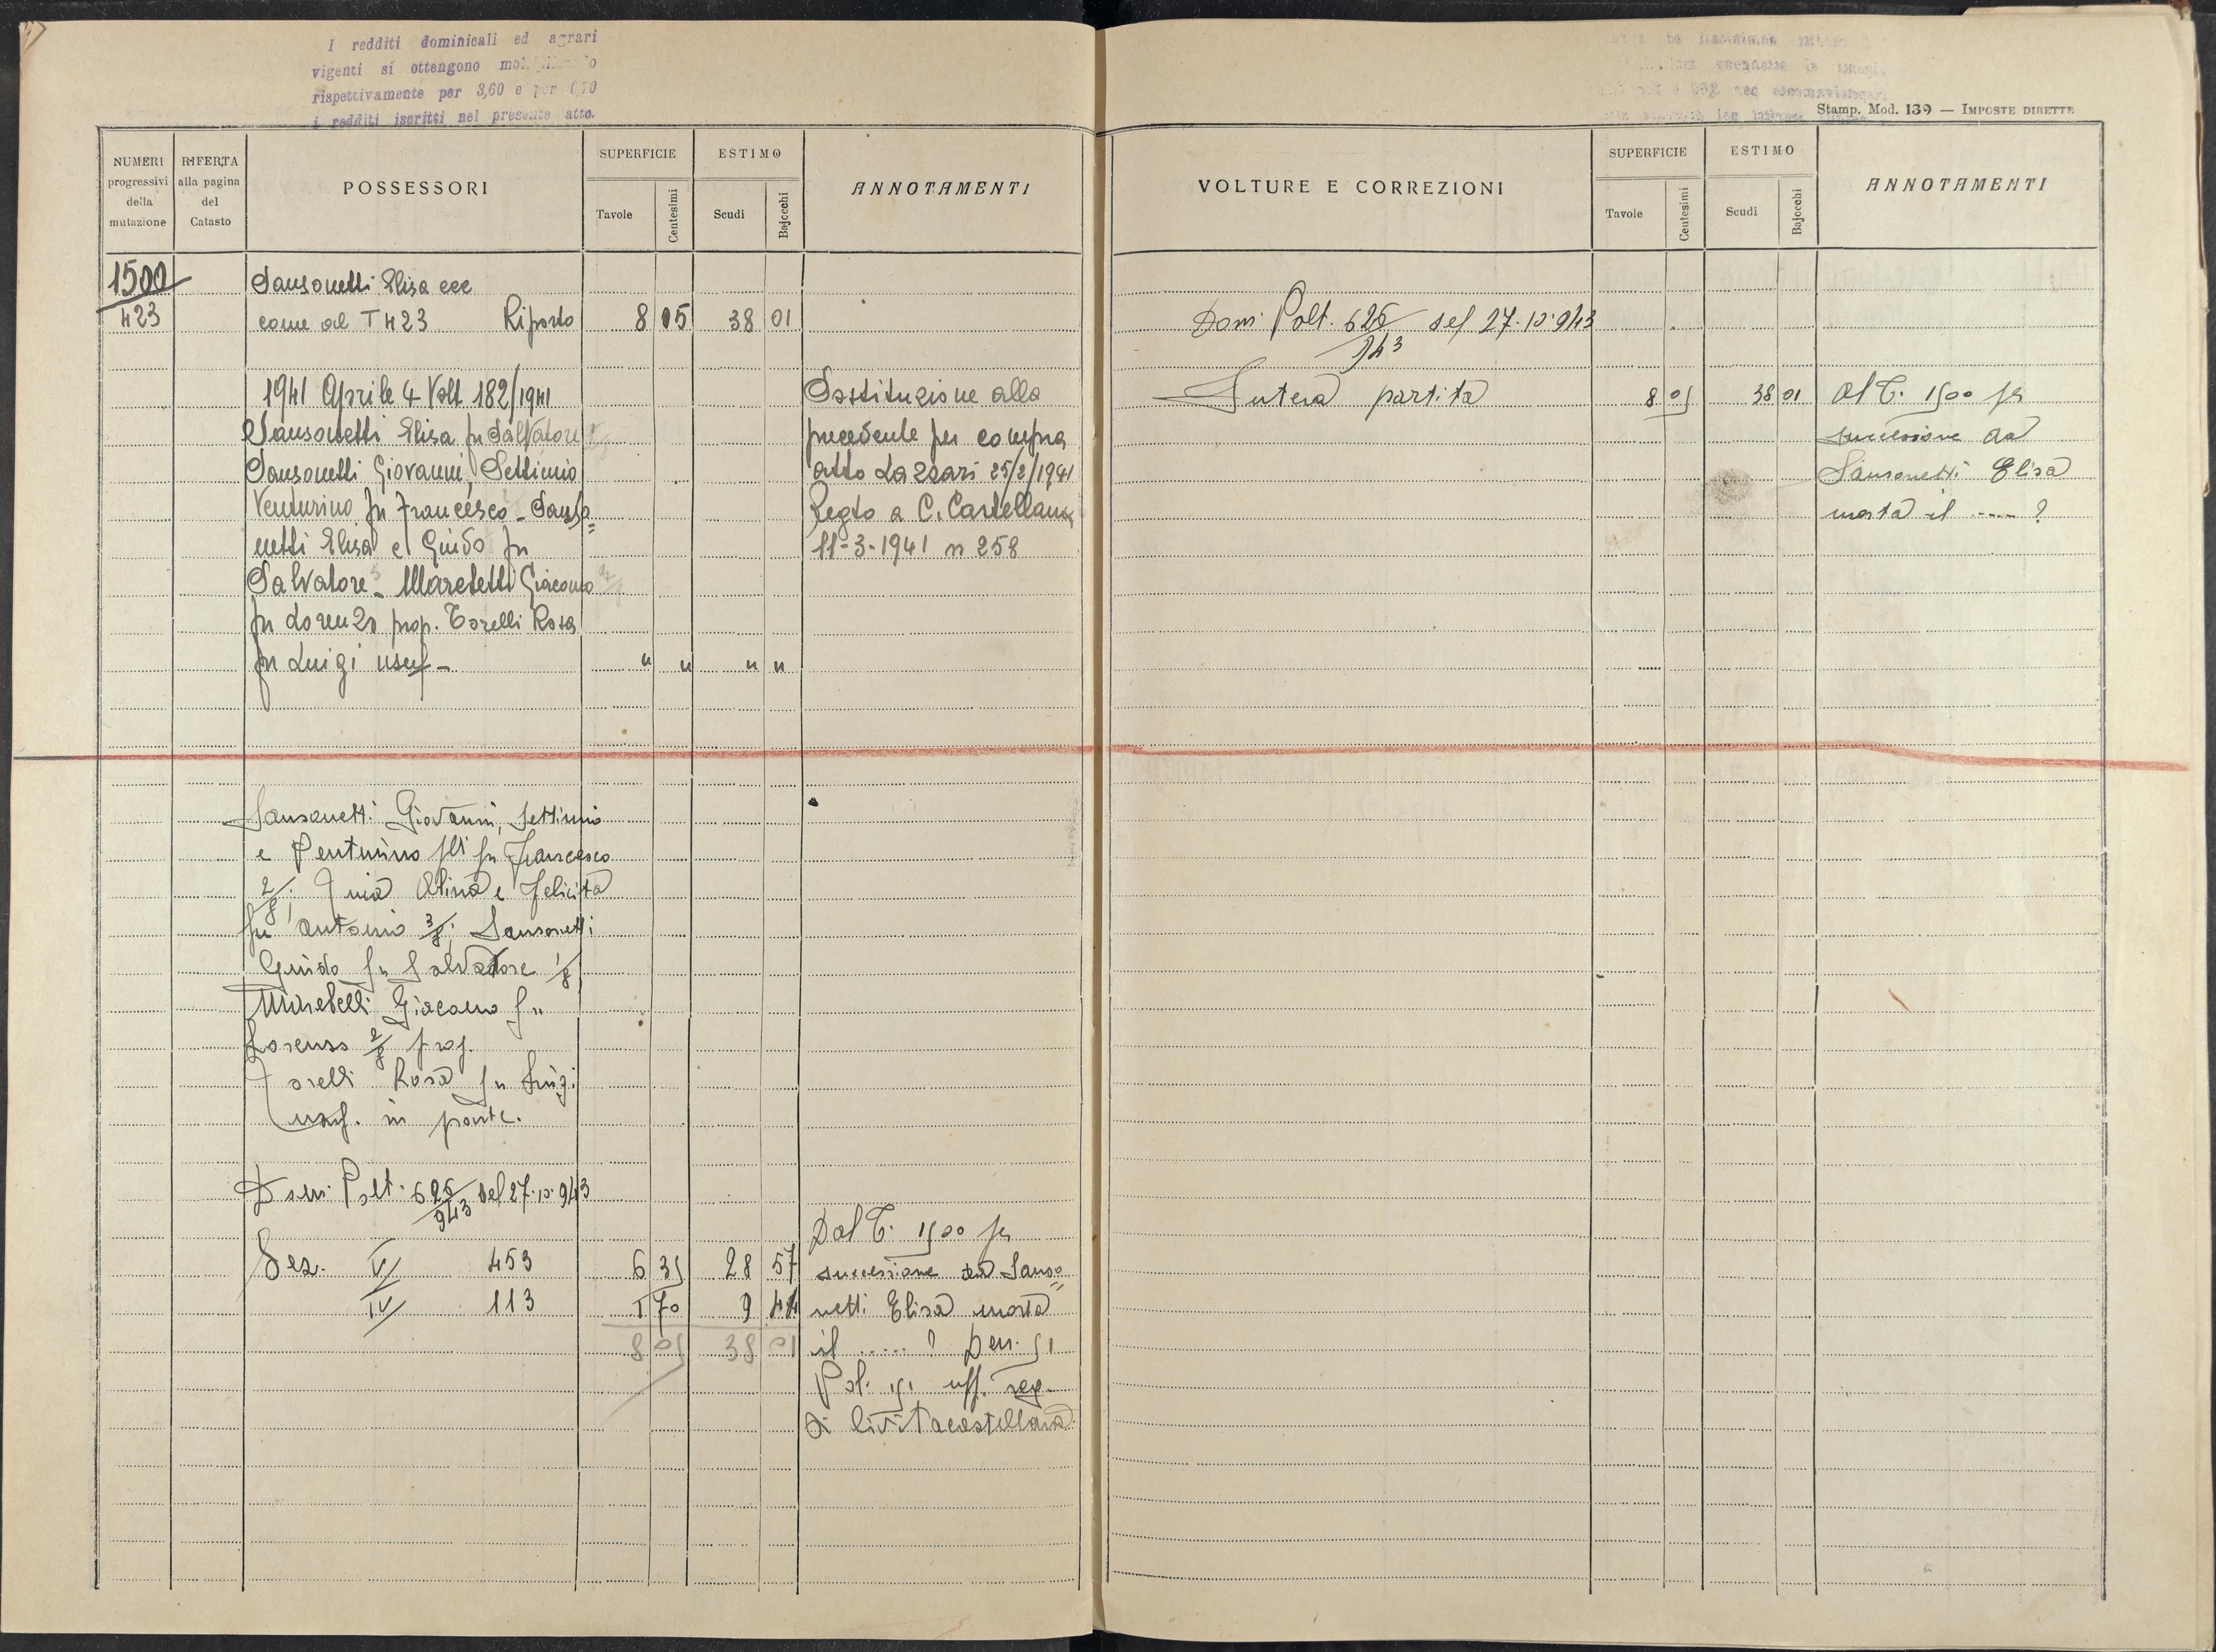 I redditi dominicali ed agrari
vigenti si ottengono
rispettivamente per 3,60 e per
i redditi iscritti nel presente atto.
Stamp. Mod. 139 — IMPOSTE DIRETTE
NUMERI progressivi della mutazione
RIFERTA alla pagina del Catasto
POSSESSORI
SUPERFICIE
Tavole
Centesimi
ESTIMO
Scudi
Bajocchi
ANNOTAMENTI
1500
423
Sansonetti Elisa ecc
come al T 423 Riporto 8 05 38 01
1941 Aprile 4 Volt 182/1941
Sansonetti Elisa fu Salvatore
Sansonetti Giovanni, Settimio
Venturino fu Francesco - Sanso=
netti Elisa e Guido fu
Salvatore - Giacomo
fu Lorenzo prop. Torelli Rosa
fu Luigi usuf - " " " "
Sostituzione alla
precedente per compra
atto Lazzari 25/2/1941
Regto a C. Castellana
11-3-1941 n 258
Sansonetti Giovanni, Settimio
e Venturino flli fu Francesco
2/8; e Felicita
fu Antonio 3/8; Sansonetti
Guido fu Salvatore 1/8
Giacomo fu
Lorenzo 2/8 prop.
Torelli Rosa fu Luigi
usuf. in parte.
Dom. Volt. 626/943 del 27.10.943
Sez. V 453 6 35 28 57
IV 113 1 70 9 44
8 05 38 01
Dal T. 1500 per
successione da Sanso=
netti Elisa morta
il ..... ? Den. 51
Vol. 151 uff. reg.
di Civitacastellana
VOLTURE E CORREZIONI
SUPERFICIE
Tavole
Centesimi
ESTIMO
Scudi
Bajocchi
ANNOTAMENTI
Dom. Volt. 626/943 del 27.10.943
Intera partita 8 05 38 01
Al T. 1500 per
successione da
Sansonetti Elisa
morta il ---- ?